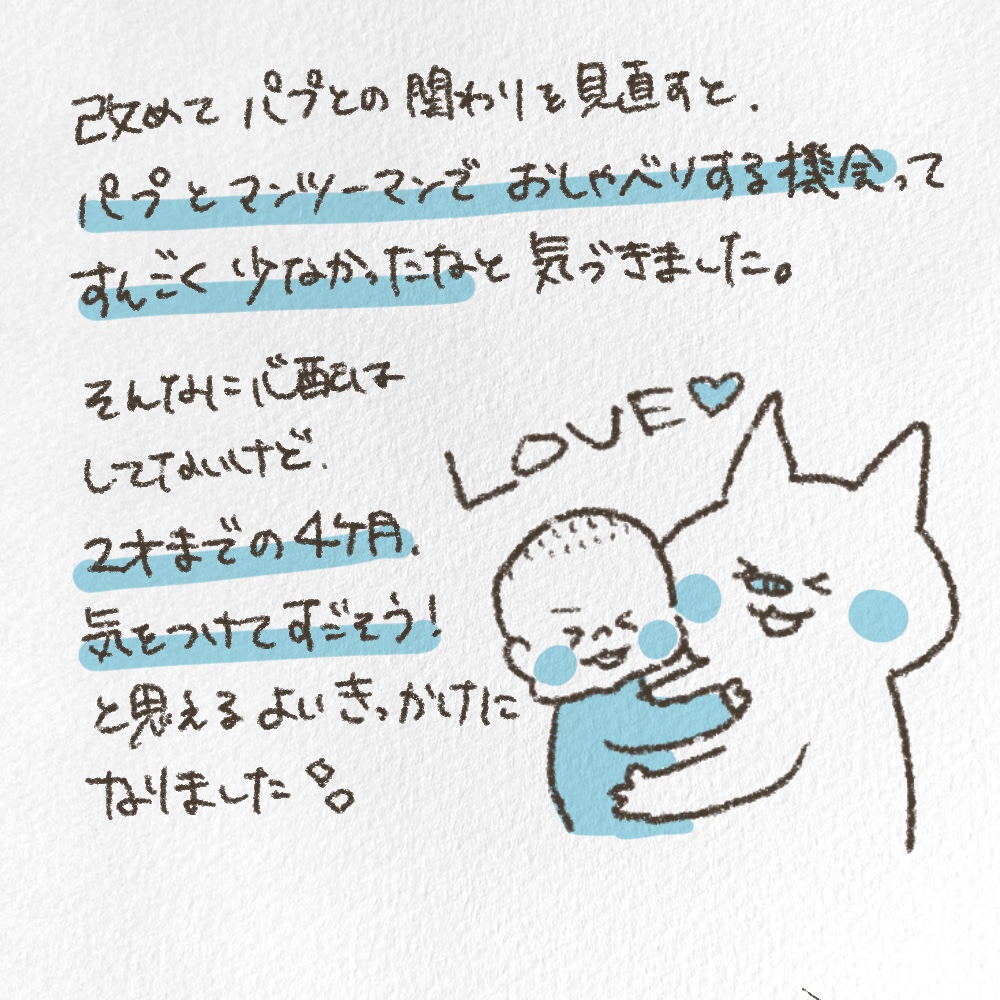 改めて パプとの 関わりを見直すと.
パプとマンツーマンで おしゃべりする機会って
すんごく 少なかったなと 気づきました。
そんなに心配は
してないけど.
2才までの4ケ月.
気をつけてすごそう!
と思えるよいきっかけに
なりました
LOVE♡